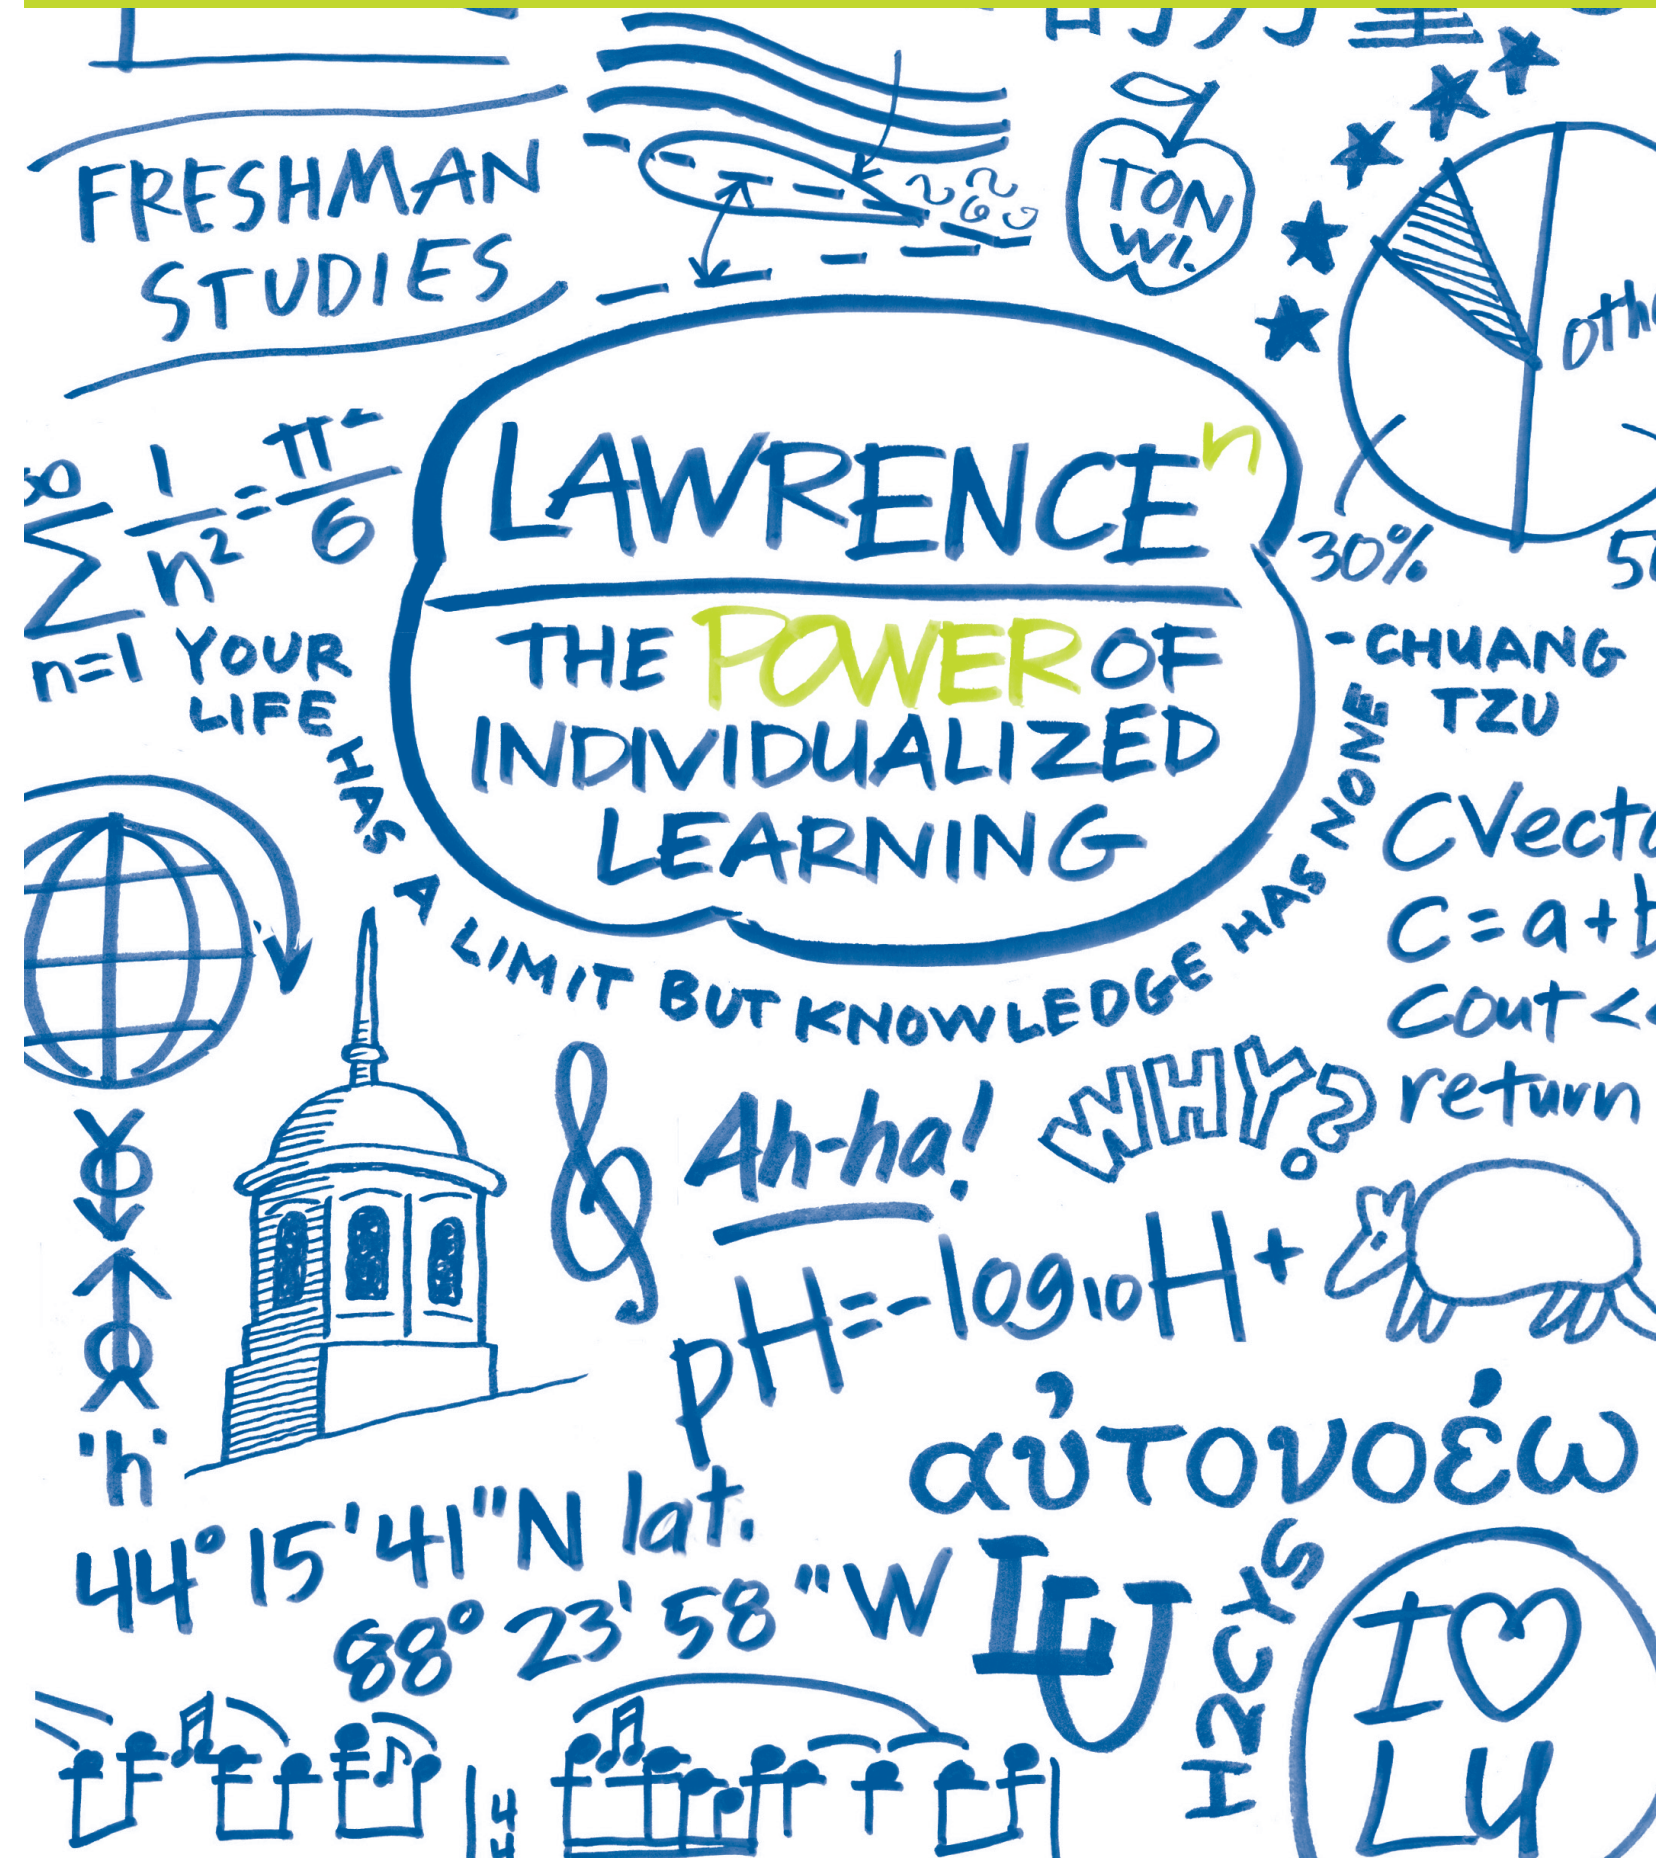 FRESHMAN
STUDIES
TON
WI.
30%
∞
∑ 1/n² = π²/6
n=1
LAWRENCEⁿ
THE POWER OF
INDIVIDUALIZED
LEARNING
YOUR
LIFE
HAS A LIMIT BUT KNOWLEDGE HAS NONE
-CHUANG
TZU
C = a +
cout <
return
Ah-ha!
WHY?
pH=-log₁₀H+
'h'
αὐτονοέω
44° 15'41"N lat.
88° 23' 58 "W
LU
H2CYS
I ♡
LU
4
4